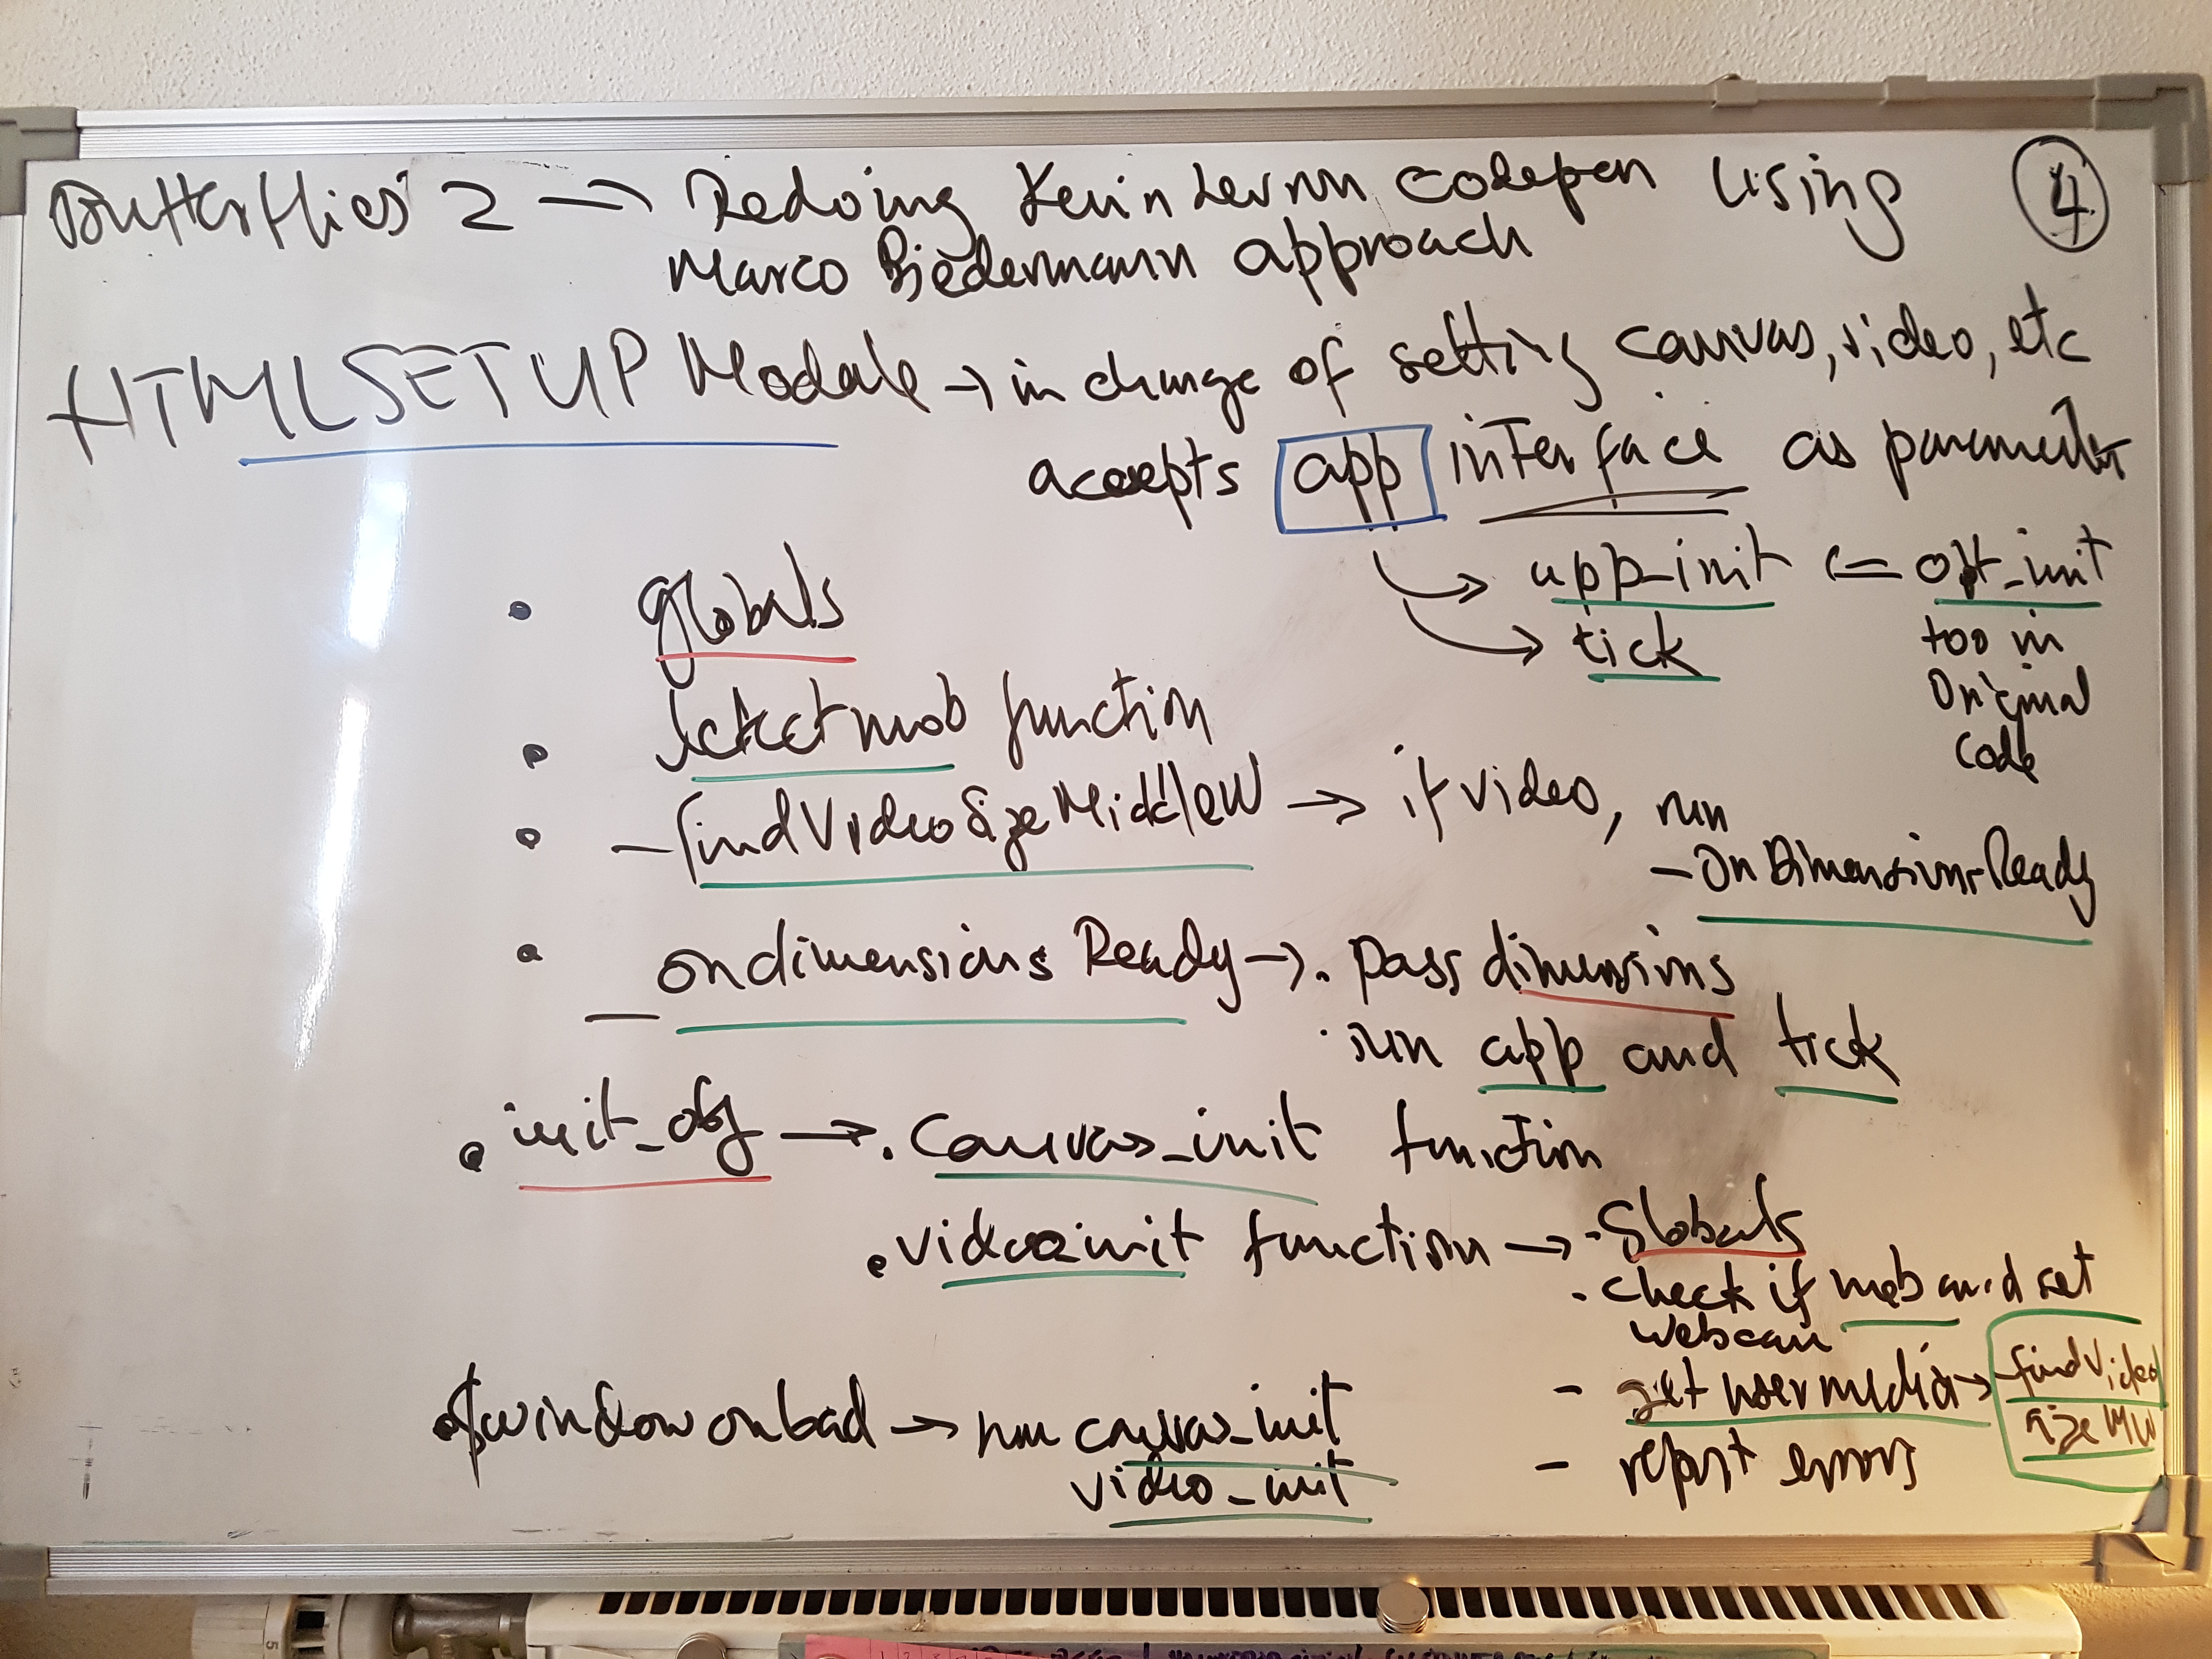 Butterflies 2 → Redoing Kevin Levron codepen using
Marco Biedermann approach
④
HTMLSETUP Module → in charge of setting canvas, video, etc
accepts app interface as parameter
→ app_init ⇐ opt_init
too in
Original
Code
→ tick
• globals
• detectmob function
• _findVideoSizeMiddleW → if video, run
_OnDimensionsReady
• _ondimensions Ready → • pass dimensions
• run app and tick
• init_obj → • canvas_init function
• video_init function → • Globals
• check if mob and set
webcam
- get user media → findVideo
sizeMW
- report errors
• window onload → run canvas_init
video_init
5